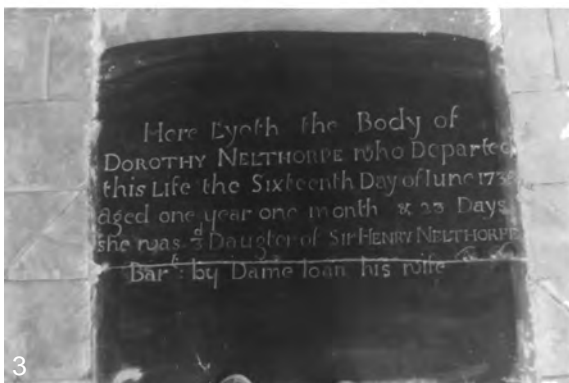 Here Lyeth the Body of
DOROTHY NELTHORPE who Departed
this Life the Sixteenth Day of Iune
aged one year one month & 23 Days
she was 3d Daugter of Sir HENRY NELTHORPE
Bart: by Dame Ioan his wife
3